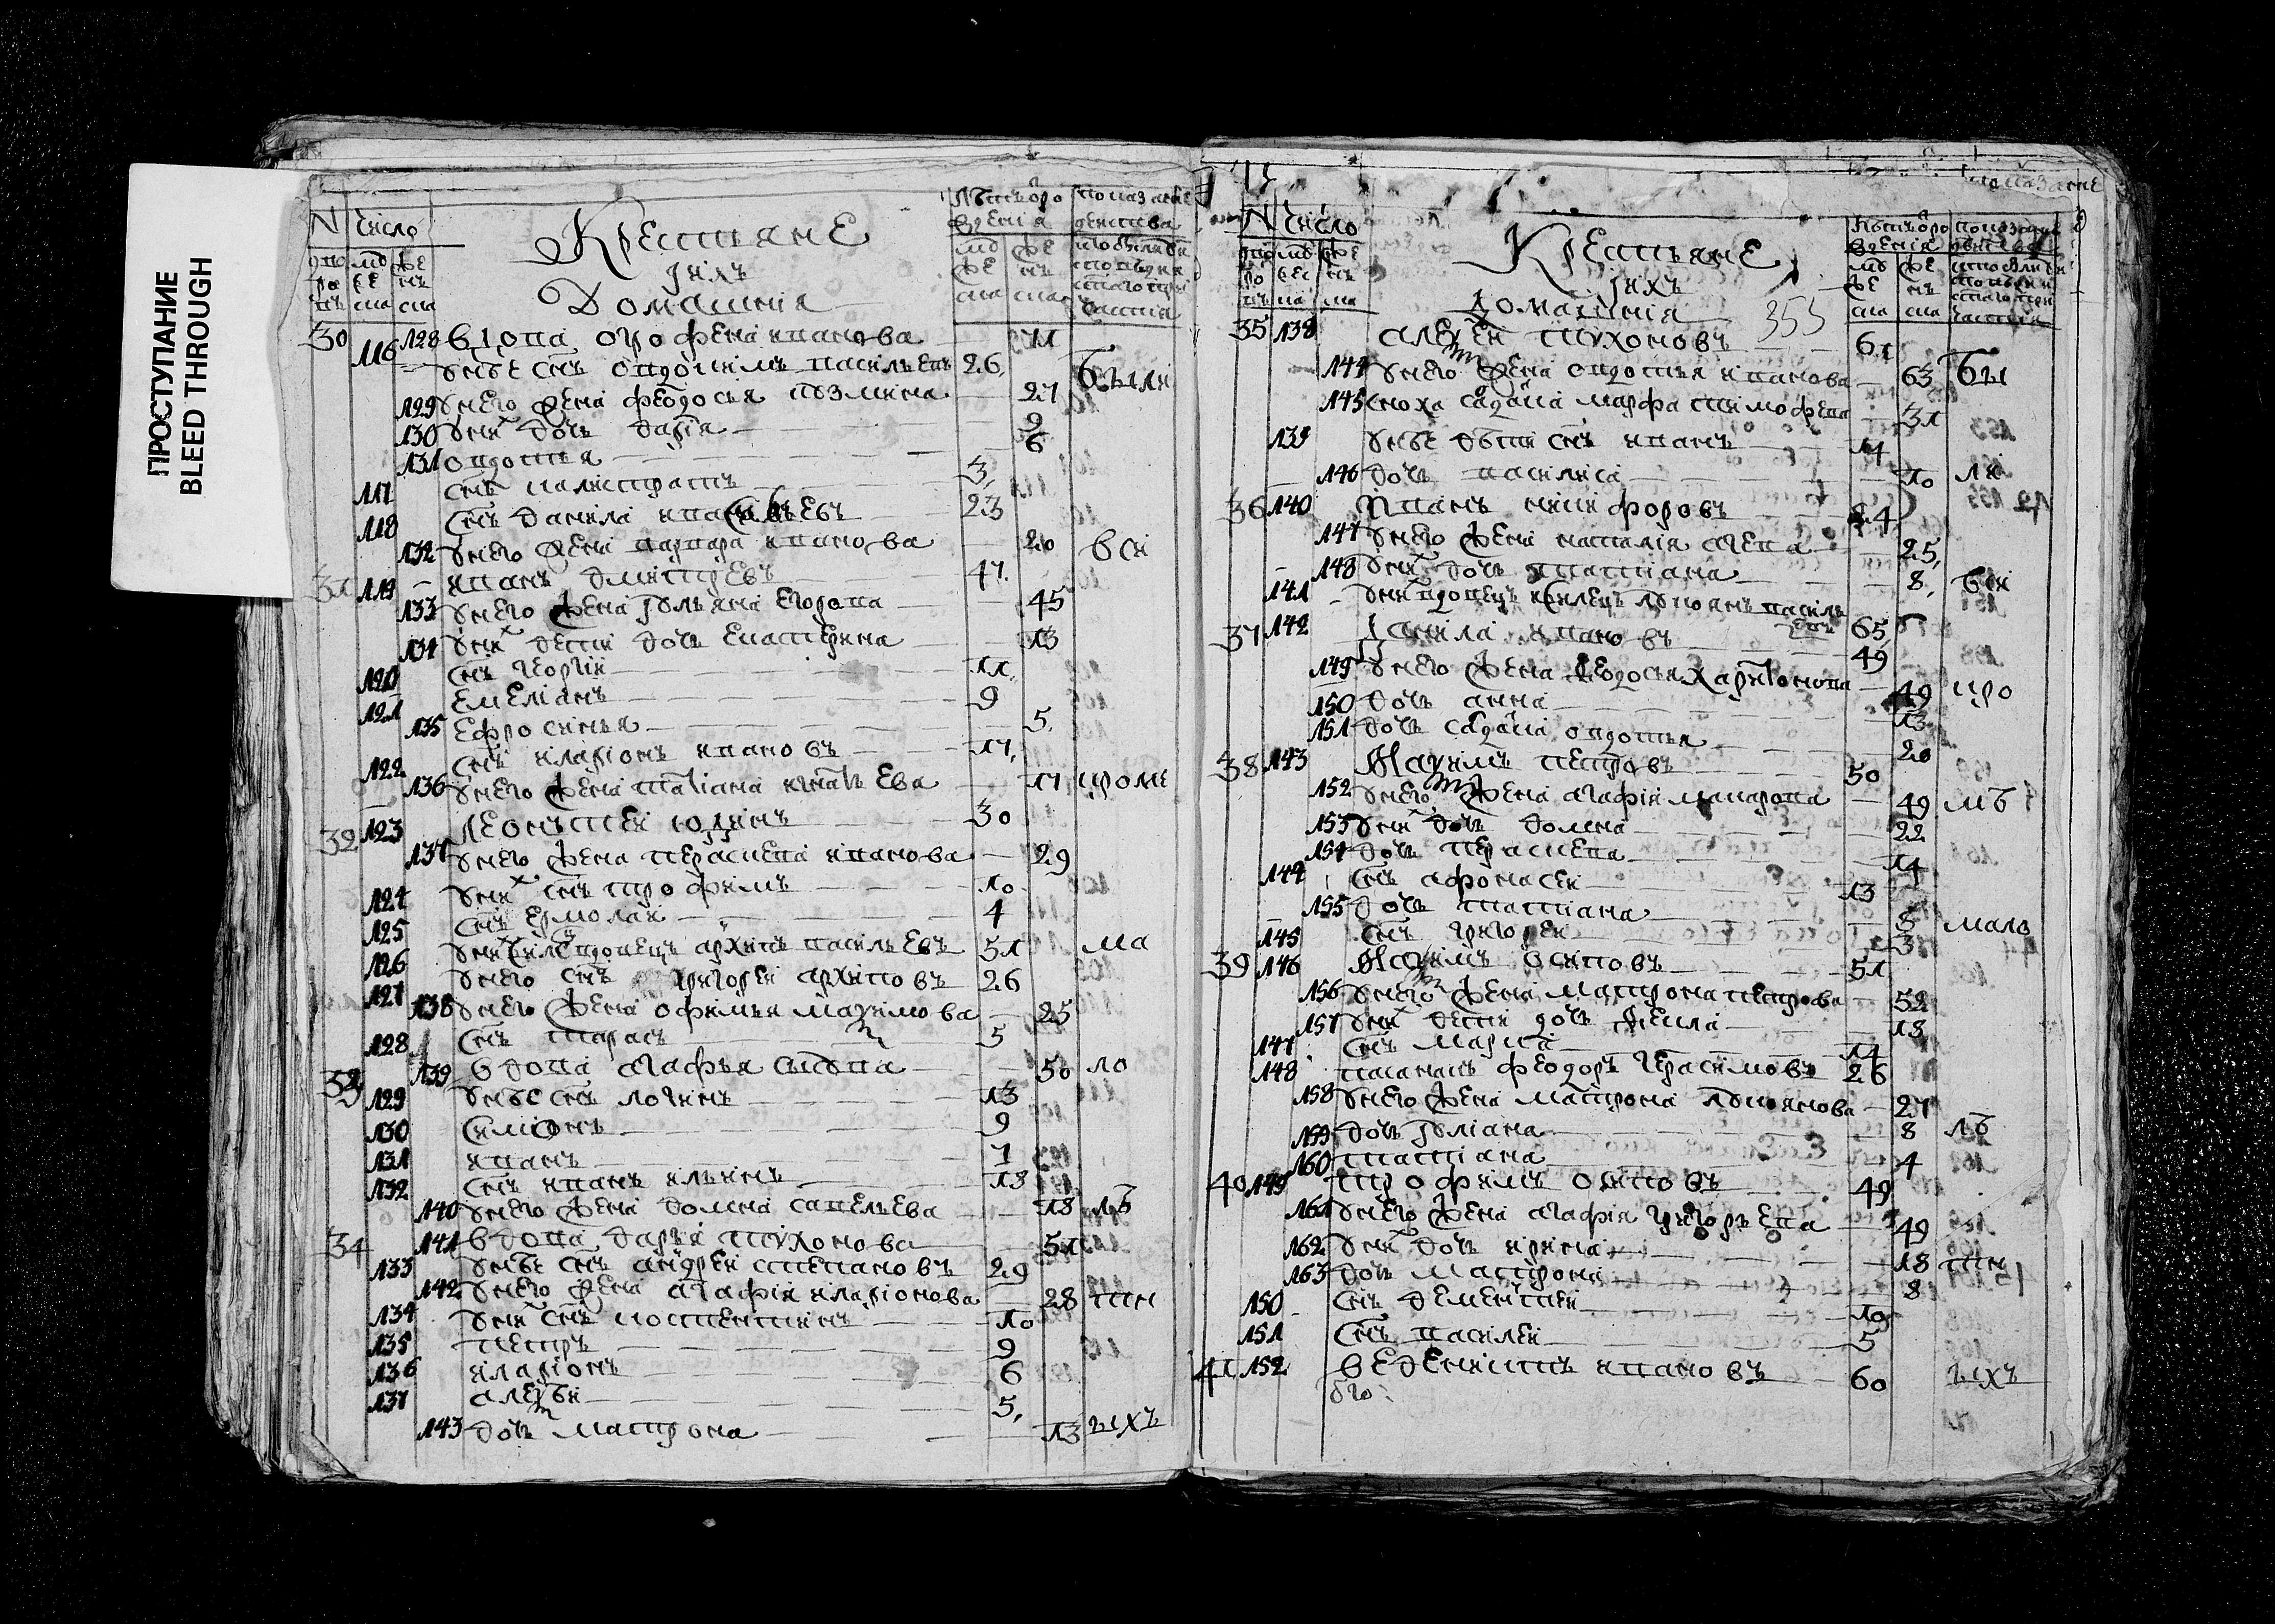 ПРОСТУПАНИЕ
BLEED THROUGH
N число
Крестьяне
ихъ
Домашнія
30 128 вдова огрофена иванова 71
116 у нее снъ евдокимъ васильевъ 26 были
129 у него жена феодосия козмина 27
130 у них дочь дарія 9
131 овдотья 6
117 снъ калистратъ 3
118 снъ данила 23
132 у него жена варвара иванова 20 вси
31 119 иванъ дмитріевъ 47
133 у него жена ульяна егорова 45
134 у них дети дочь екатерина 13
120 снъ георгіи 11
121 емеліанъ 9
135 ефросинья 5
122 снъ иларіонъ ивановъ 17
136 у него жена татіана игнатьева 17 кроме
32 123 леонътей юдинъ 30
137 у него жена пераскева иванова 29
124 у них снъ трофимъ 10
125 снъ ермолаи 4
126 архипъ васильевъ 51 ма
127 у него снъ григореи архиповъ 26
138 у него жена офимья макзимова 25
128 снъ тарас 5
33 139 вдова агафья 50 ло
129 у нее снъ логинъ 13
130 симіонъ 9
131 иванъ 7
132 снъ иванъ ильинъ 18
140 у него жена домна савельева 18 лѣ
34 141 вдова дарья тихонова 51
133 у нее снъ андреи степановъ 29
142 у него жена агафія иларіонова 28 тн
134 у них снъ костентинъ 10
135 петръ 9
136 иларіонъ 6
137 алеѯѣи 5
143 дочь матрона 13 ыхъ
N число
Крестьяне
ихъ
Домашнія 355
35 138 алеѯеи тихоновъ 61
144 у него жена овдотья иванова 63 бы
145 сноха салдацка марфа тимофеева 31
139 у нее дѣти снъ иванъ 14
146 дочь василиса 10 ли
36 140 иванъ никифоровъ 24
147 у него жена наталія 25
148 у них дочь татіана 8 вси
141 лукоянъ васильевъ 65
37 142 данила ивановъ 49
149 у него жена феодосия харитонова 49 кро
150 дочь анна 13
151 дочь салдацка овдотья 20
38 143 макзимъ петровъ 50
152 у него жена агафія макарова 49 мѣ
153 у них дочь домна 22
154 дочь пераскева 14
144 снъ афонасеи 13
155 дочь татіана 8 мало
145 снъ григореи 3
39 146 макзимъ осиповъ 51
156 у него жена матрона петрова 52
157 у них дети дочь фекла 18
147 снъ марка 14
148 пасанакъ феодоръ герасимовъ 26
158 у него жена матрона лукоянова 27
159 дочь уліана 8 лѣ
160 татіана 4
40 149 трофимъ осиповъ 49
161 у него жена агафія григорьева 49
162 у них дочь ирина 18 тн
163 дочь матрона 8
150 снъ дементеи 10
151 снъ василеи 5
41 152 веденихтъ ивановъ 60 ыхъ